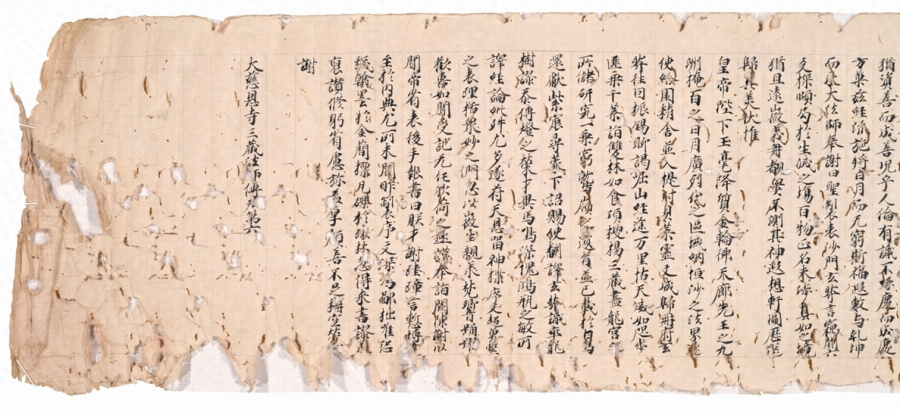 猶資善而成善況乎人倫有識不緣慶而成慶
方冀茲經流施將日月而无窮斯福遐敷与乾坤
而永大法師奉謝曰聖製表沙門玄奘言竊聞六
爻探賾局於生滅之場百物正名未涉真如之境
猶且遠徵羲冊覩奧不測其神遐想軒圖歷選
歸其美伏惟
皇帝陛下玉毫降質金輪御天廓先王之九
州掩百之日月廣列代之區域納恒沙之法界遂
使給園精舍並入提封貝葉靈文咸歸冊府玄
奘往因振錫聊謁崛山經途万里怙天威如咫步
匪乘千葉詣雙林如食頃搜揚三藏盡龍宮之
所儲研究一乘窮鷲嶺之遺旨並已載於白馬
還獻紫宸尋蒙下詔賜使翻譯玄奘識乖龍
樹謬忝傳燈之榮才異馬鳴深愧瀉瓶之敏所
譯經論紕舛尤多遂荷天恩留神構序文超象繫
之表理括眾妙之門忽以微生親承梵響踊躍
歡喜如聞受記无任欣荷之極謹奉詣闕陳謝以
聞帝看表後手報書曰朕才謝珪璋言慚博達
至於內典尤所未閑昨製序文深為鄙拙唯恐
穢翰墨於金簡標瓦礫於珠林忽得來書謬承
褒讚循躬省慮弥益厚顏善不足稱空勞致
謝
大慈恩寺三藏法師傳卷第六